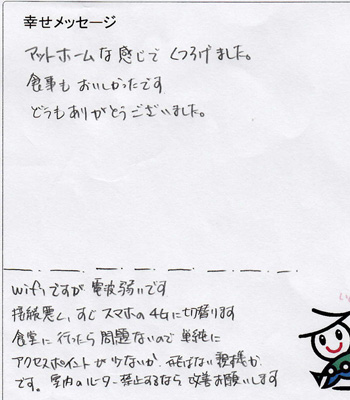 幸せメッセージ
アットホームな感じで くつろげました。
食事も おいしかったです
どうもありがとうございました。
wifiですが 電波弱いです
接続悪く、すぐスマホの4Gに切替ります
食堂に行ったら問題ないので 単純に
アクセスポイントが少ないか 飛ばない機種か
です。室内のルーター禁止するなら 改善お願いします